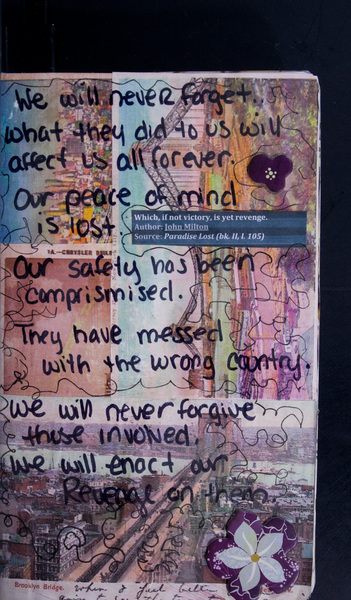 We will never forget.
what they did to us will
affect us all forever.
Our peace of mind
is lost.
Which, if not victory, is yet revenge.
Author: John Milton
Source: Paradise Lost (bk. II, l. 105)
CHRYSLER
Our safety has been
comprismised.
They have messed
with the wrong country.
We will never forgive
those involved.
We will enact our
Revenge on them.
Brooklyn Bridge.
when I feel better